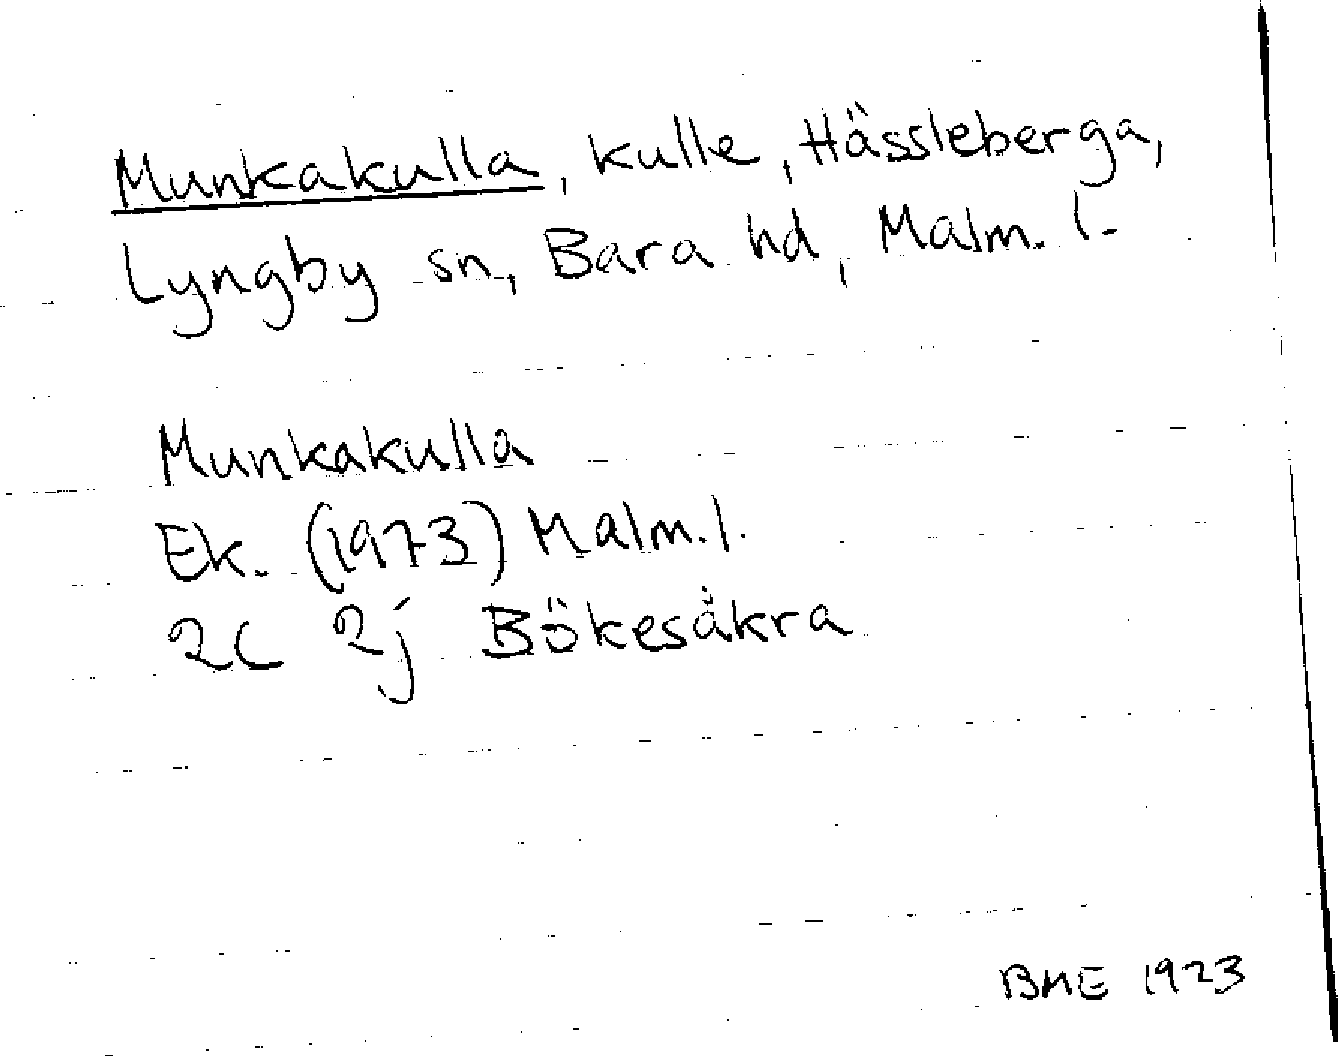 Munkakulla, kulle, Hässleberga,
Lyngby sn, Bara hd, Malm. l.
Munkakulla
Ek. (1973) Malm.l.
2C 2j Bökesåkra
BHE 1923